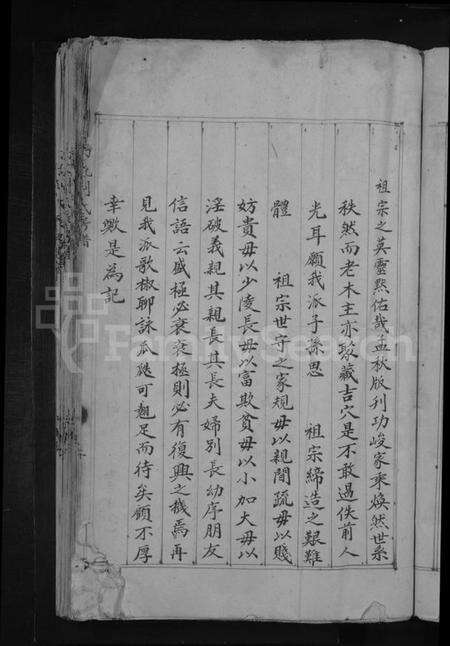 祖宗之英靈黙佑哉孟秋版刊功峻家乘煥然世系
秩然而老木主亦敬藏吉穴是不敢過佚前人
光耳願我派子孫思 祖宗締造之艱難
體 祖宗世守之家規毋以親間疏毋以賤
妨貴毋以少陵長毋以富欺貧毋以小加大毋以
淫破義親其親長其長夫婦別長幼序朋友
信語云盛極必衰衰極則必有復興之機焉再
見我派歌椒聊詠瓜瓞可翹足而待矣顧不厚
幸歟是為記
FamilySearch